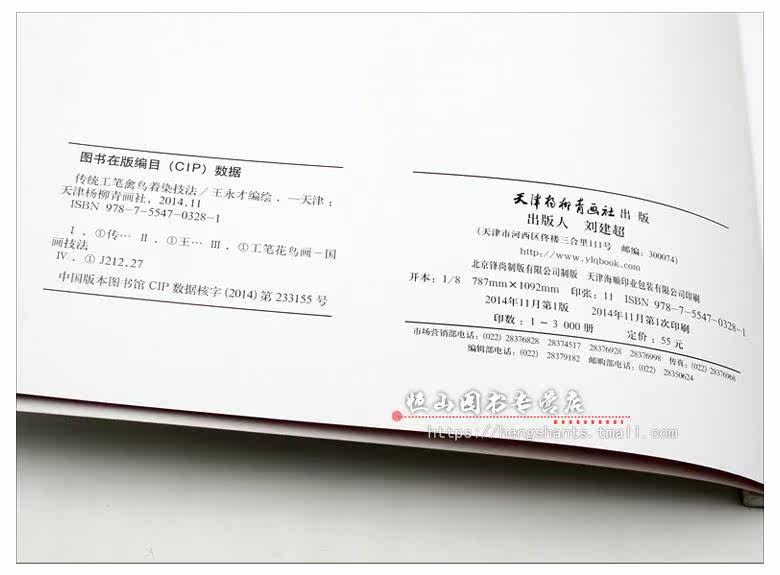 图书在版编目（CIP）数据
传统工笔禽鸟着染技法／王永才编绘．—天津：
天津杨柳青画社，2014.11
ISBN 978-7-5547-0328-1
Ⅰ．①传… Ⅱ．①王… Ⅲ．①工笔花鸟画－国
画技法
Ⅳ．①J212.27
中国版本图书馆CIP数据核字（2014）第233155号
天津杨柳青画社 出版
出版人 刘建超
（天津市河西区佟楼三合里111号 邮编：300074）
http://www.ylqbook.com
北京锋尚制版有限公司制版 天津海顺印业包装有限公司印刷
开本：1/8 787mm×1092mm 印张：11 ISBN 978-7-5547-0328-1
2014年11月第1版 2014年11月第1次印刷
印数：1－3 000册 定价：55元
市场营销部电话：(022) 28376828 28374517 28376928 28376998 传真：(022) 28376968
编辑部电话：(022) 28379182 邮购部电话：(022) 28350624
恒山图书专营店
https://hengshants.tmall.com